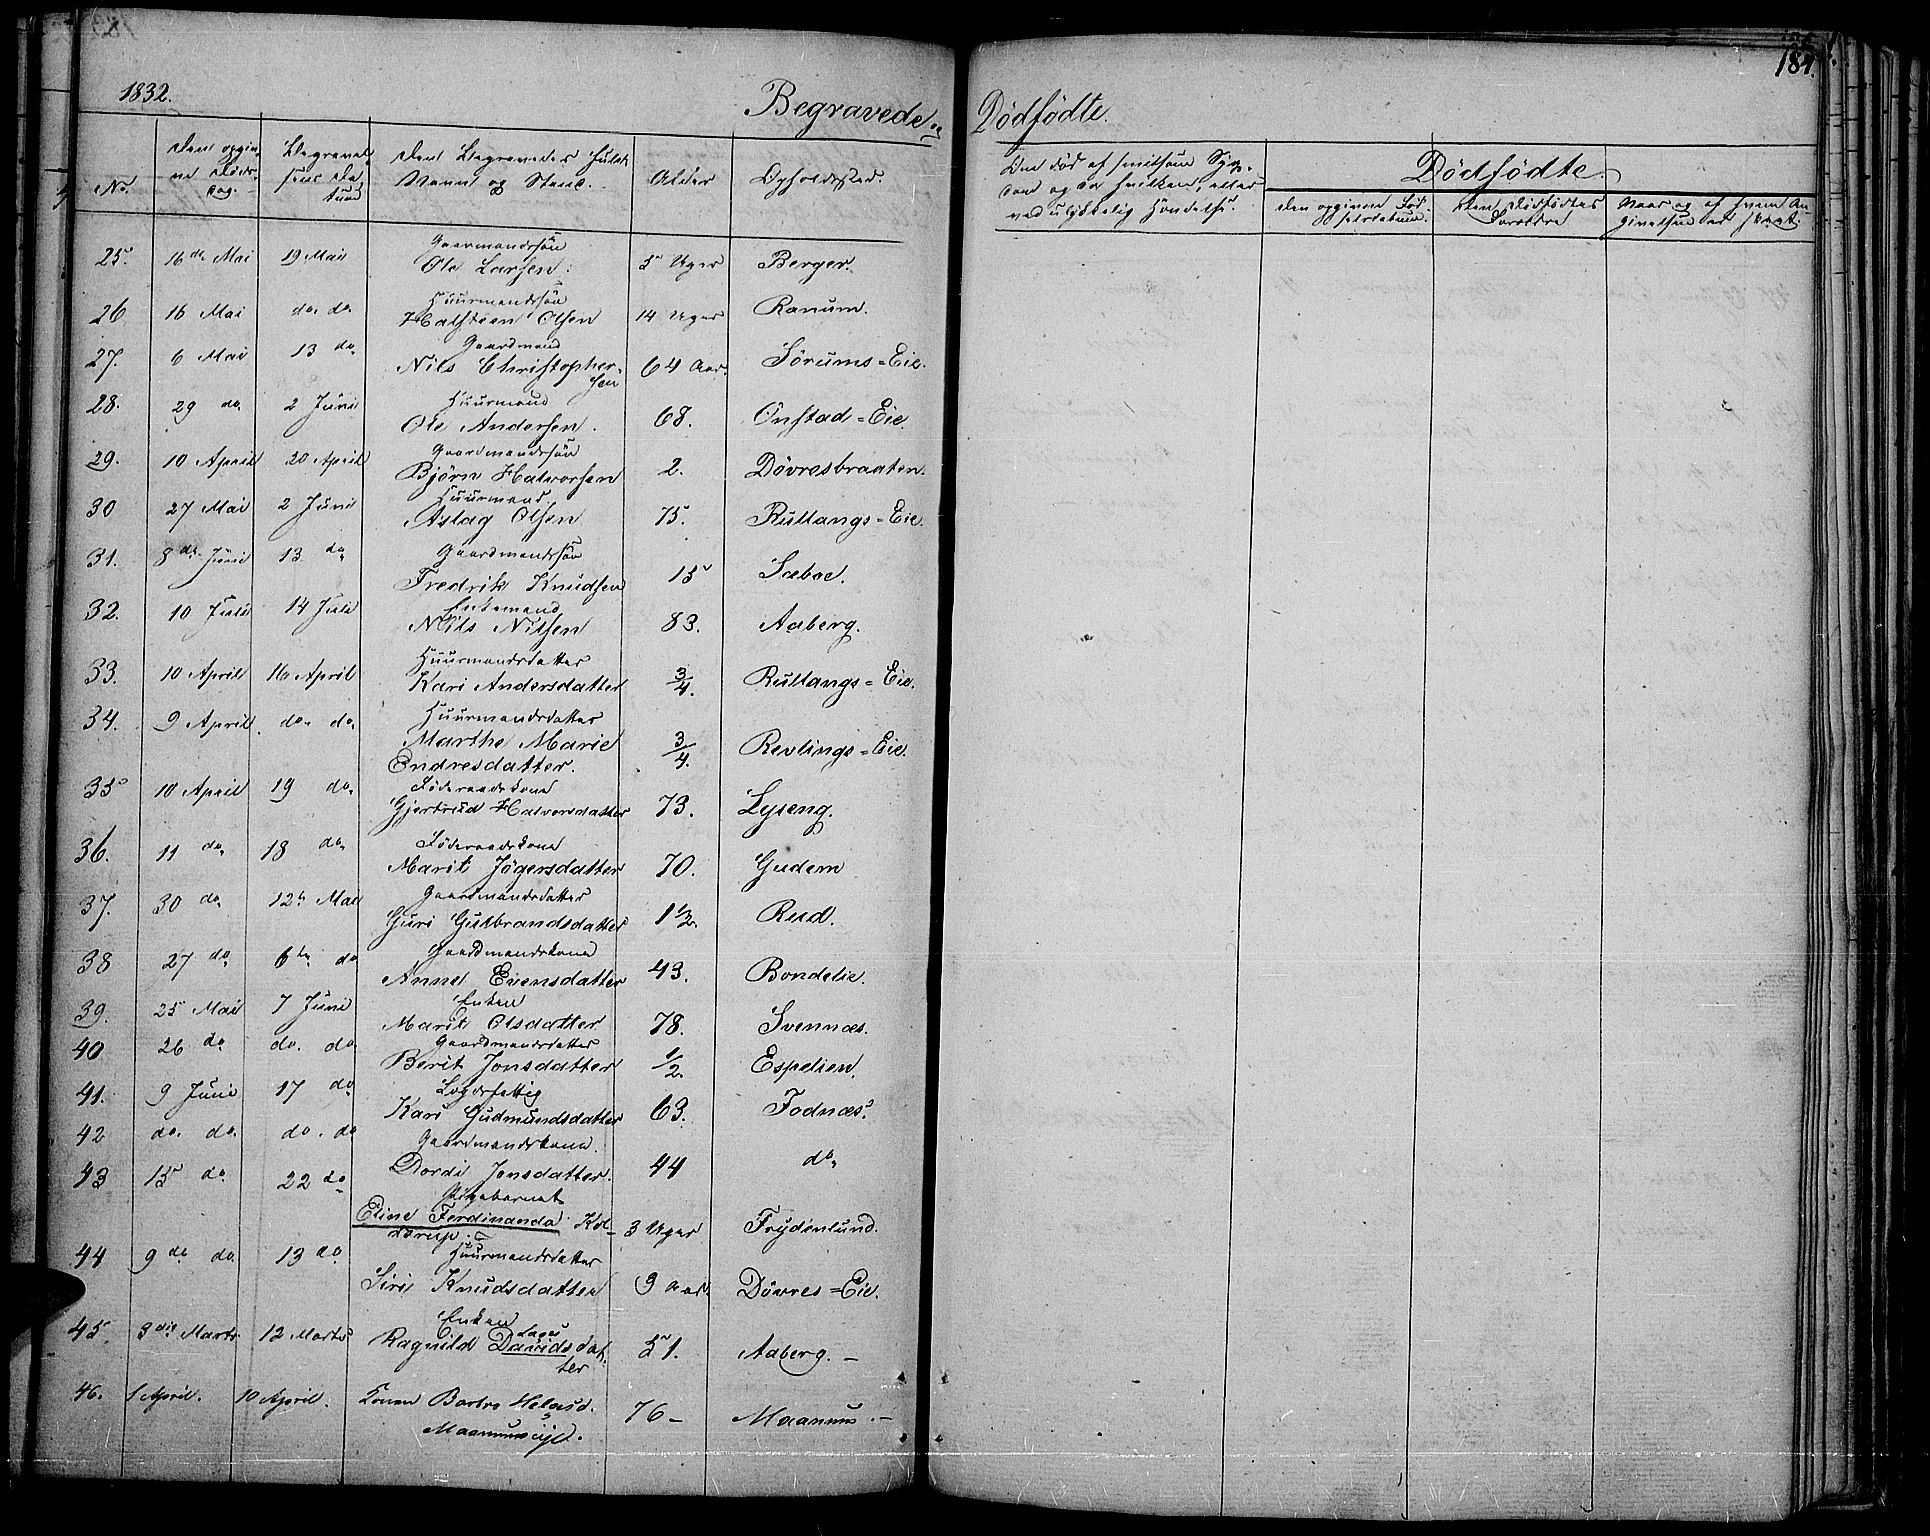 1832.
Begravede og Dødfødte.
184.
No.
Den opgivne Døds-dag.
Begravelsens Datum
Den Begravedes fulde Navn og Stand.
Alder
Opholdssted.
Om død af smitsom Sygdom og da hvilken, eller ved ulykkelig Hændelse.
Dødfødte.
Den opgivne Fødselsdatum.
Den Dødfødtes Forældre
Naar og af hvem Angivelsen er skeet.
25. 16de Mai 19 Mai Gaardmandssøn Ole Larsen. 5 Uger Berger.
26 16 Mai do. do. Huusmandssøn Halsteen Olsen 14 Uger Ranum.
27. 6 Mai 13 do. Gaardmand Nils Christophersen 64 Aar. Sørums=Eie.
28. 29 do. 2 Juni Huusmand Ole Andersen. 68. Onstad=Eie.
29. 10 April 20 April Gaardmandssøn Bjørn Halvorsen 2. Dövresbraaten.
30 27 Mai 2 Juni Huusmand Aslag Olsen 75. Rullangs=Eie.
31. 8de Juni 13 do. Gaardmandssøn Fredrik Knudsen 15 Sæboe.
32. 10 Juli 14 Juli Enkemand Nils Nilsen 83. Aaberg.
33. 10 April 16 April Huusmandsdatter Kari Andersdatter 3/4. Rullangs=Eie.
34. 9 April do. do. Huusmandsdatter Marthe Marie Endresdatter. 3/4. Revlings=Eie.
35 10 April 19 do. Føderaadskone Gjertrud Halvorsdatter 73. Lyseng.
36. 11 do. 18 do. Føderaadskone Marit Jögersdatter 70. Gudem
37. 30 do. 12te Mai Gaardmandsdatter Guri Gulbrandsdatter 1 1/2. Rud.
38 27 do. 6te do. Gaardmandskone Anne Evensdatter 43. Bondelie.
39. 25 Mai 7 Juni Enken Marit Olsdatter 78. Svennæs.
40 26 do. do. do. Gaardmandsdatter Berit Jonsdatter 1/2. Espelien.
41. 9 Juni 17 do Lægdsfattig Kari Gudmundsdatter 63. Fodnæs.
42 do. do. do. do Gaardmandskone. Dordi Jonsdatter. 44 do.
43 15 do. 22 do Pigebarnet Eline Ferdinanda Koldtorup. 3 Uger Frydenlund.
44 9 do do. 13 do. Huusmandsdatter Siri Knudsdatter 3 Aar. Dövres=Eie.
45. 3die Marts 12 Marts Enken Ragnild Davidsdatter 51. Aaberg. –
46. 1 April. 10 April. Konen Barbro Helgesd. Maanumseije. 76 – Maanum. –